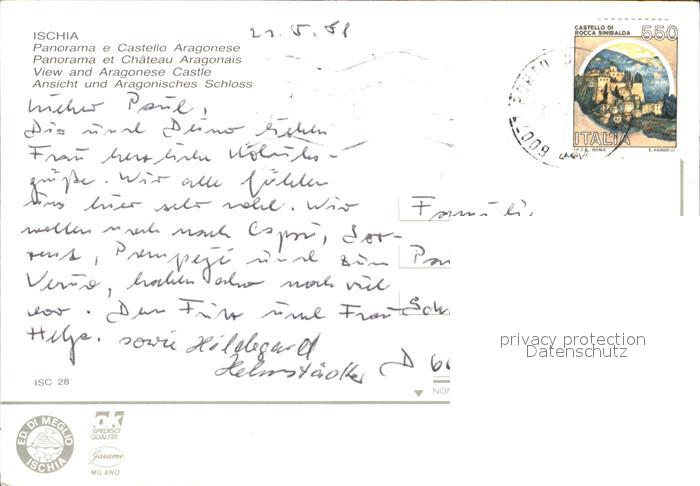 ISCHIA
Panorama e Castello Aragonese
Panorama et Château Aragonais
View and Aragonese Castle
Ansicht und Aragonisches Schloss
CASTELLO DI
ROCCA SINIBALDA
550
ITALIA
I.P.Z.S. ROMA E. VANGELLI
PORTO
Lieber Paul,
Dir und Deiner lieben
Frau herzliche Urlaubs-
grüße. Wir alle fühlen
uns hier sehr wohl. Wir
wollen noch nach Capri, Sor-
rent, Pompeji und zum
haben also noch viel
vor. Dein und Frau
Helga. sowie Hildegard
Helmstädter
Famili
D 66
privacy protection
Datenschutz
ISC 28
ED. DI MEGLIO
ISCHIA
ok
SPEDISCI
QUALITÀ
Garami
MILANO